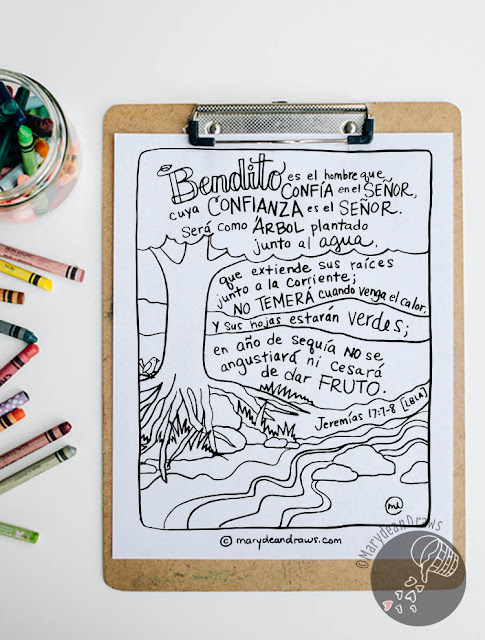 Bendito es el hombre que
CONFÍA en el SEÑOR,
cuya CONFIANZA es el SEÑOR.
Será como ÁRBOL plantado
junto al agua,
que extiende sus raíces
junto a la corriente;
NO TEMERÁ cuando venga el calor,
y sus hojas estarán verdes;
en año de sequía NO se
angustiará ni cesará
de dar FRUTO.
Jeremías 17:7-8 [LBLA]
md
© marydeandraws.com
©MarydeanDraws